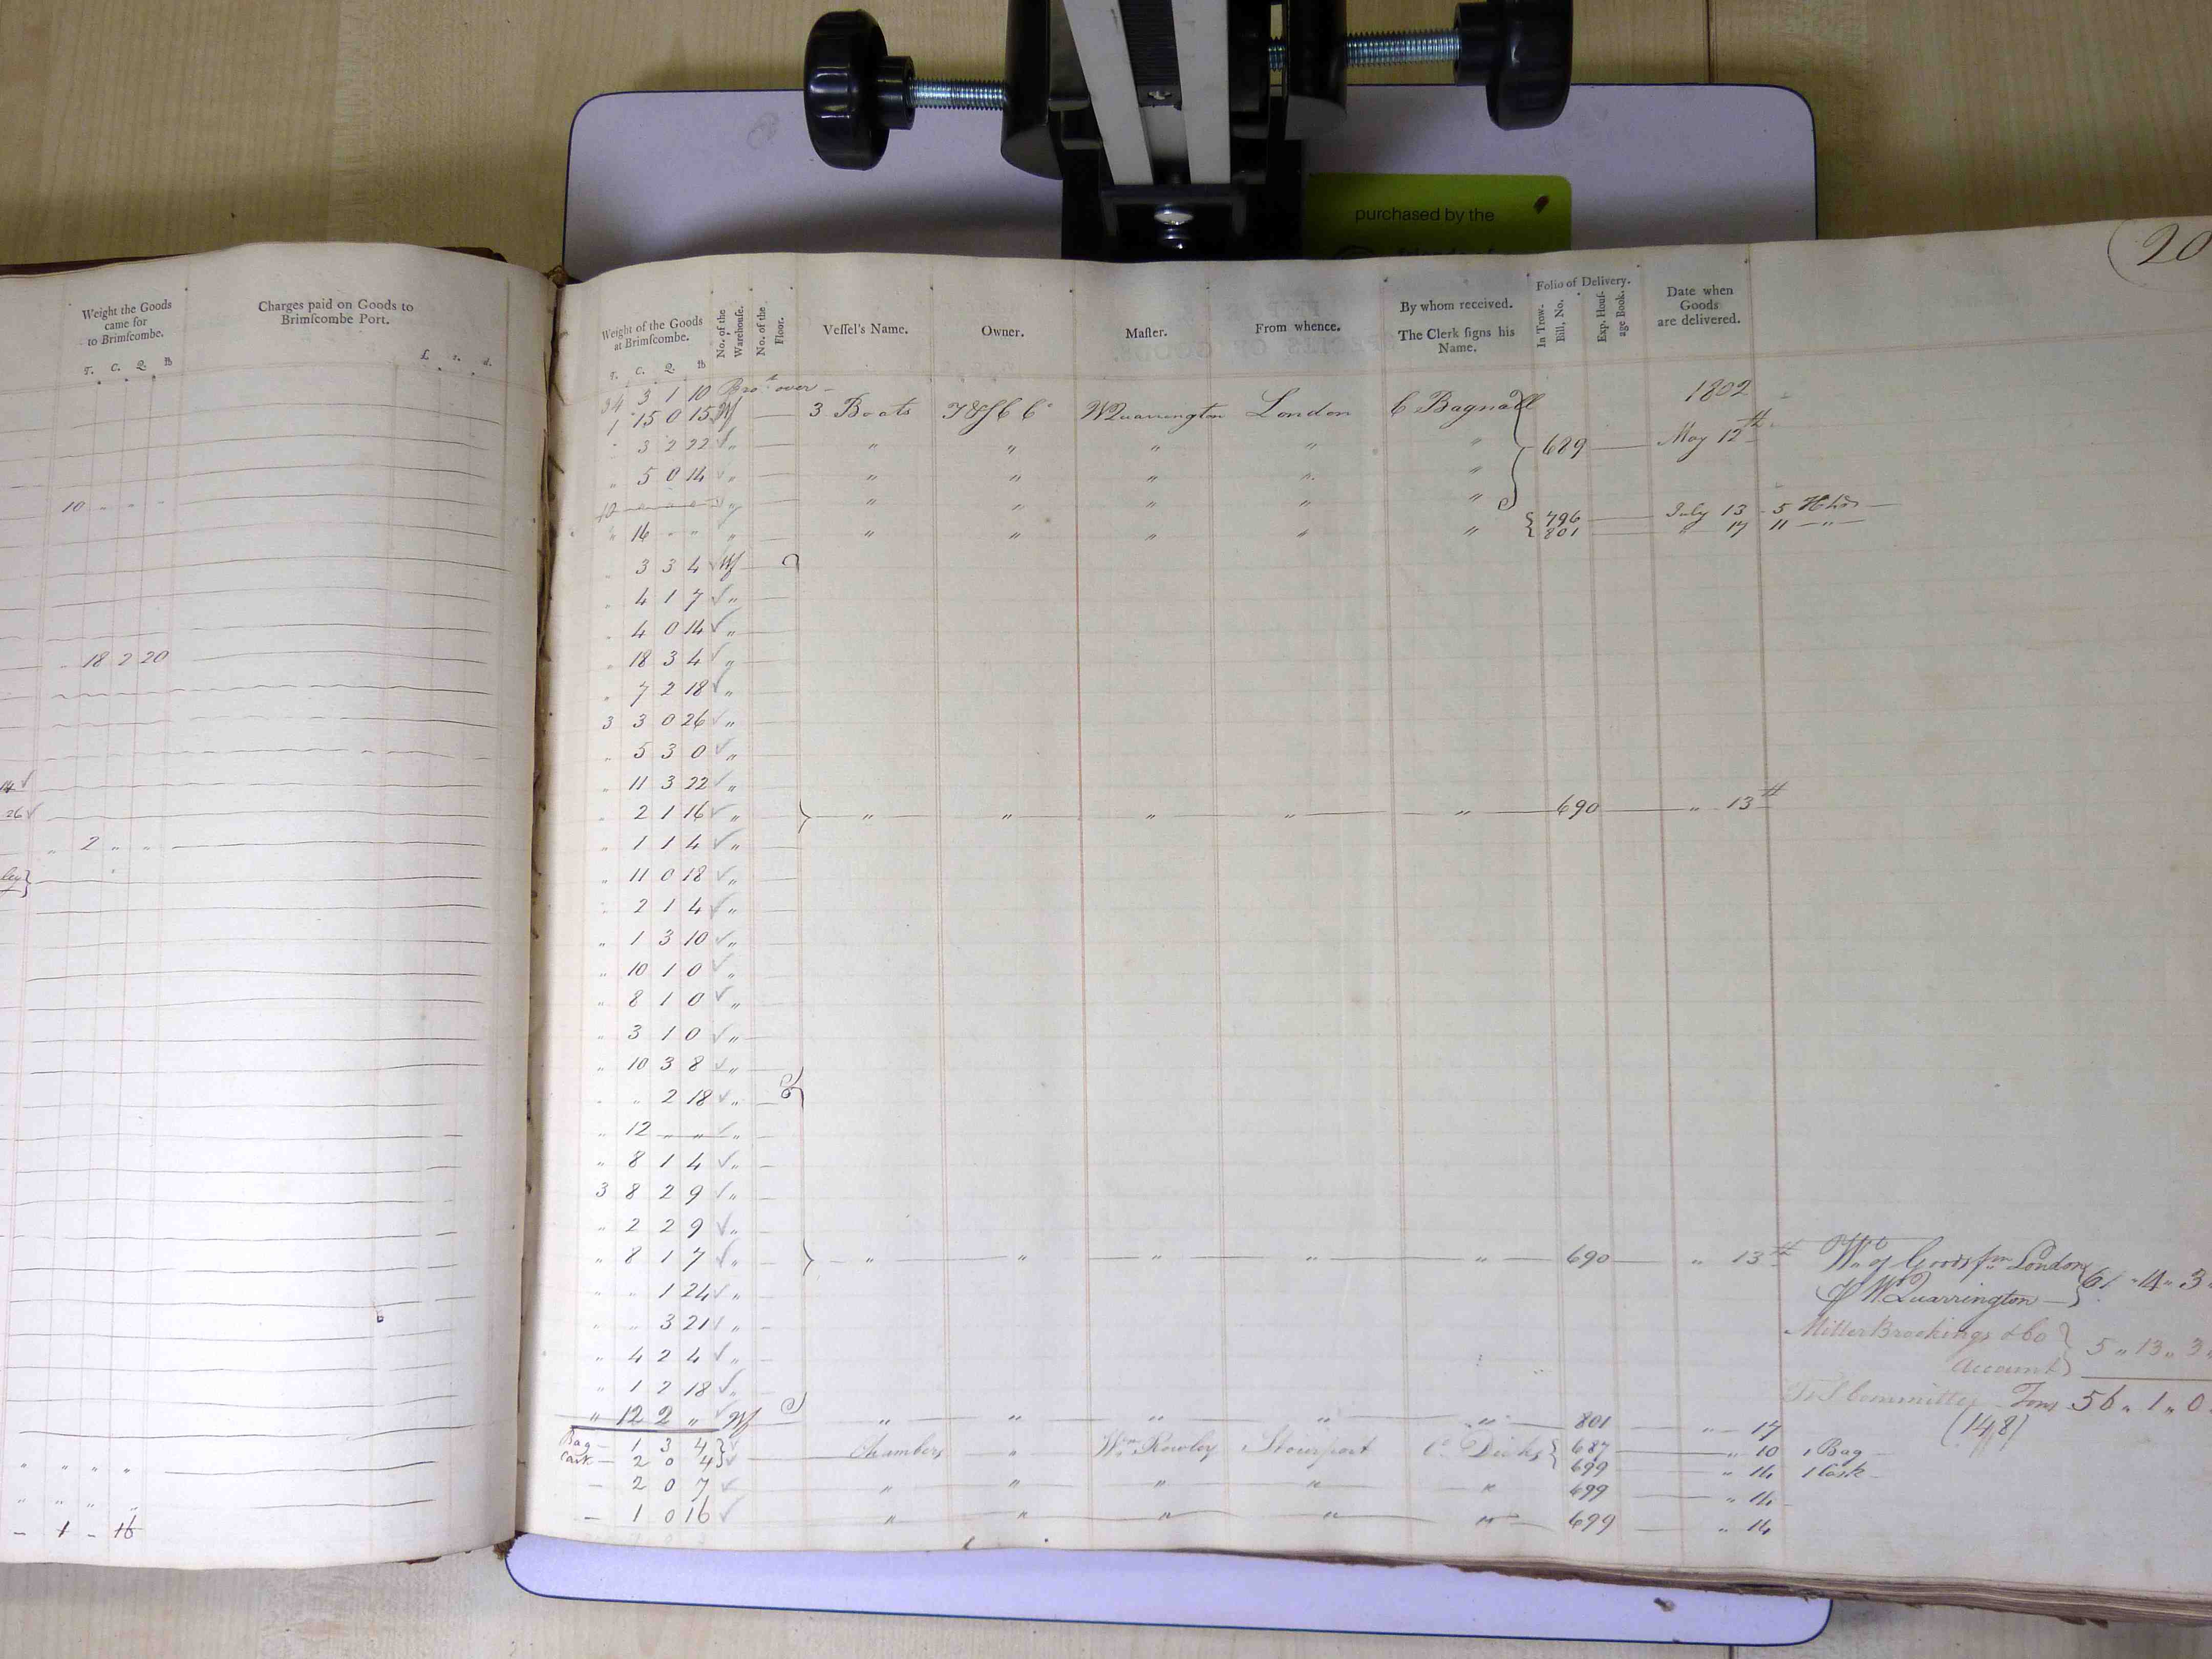 purchased by the
20
Weight the Goods
came for
to Brimſcombe.
T. C. Q. lb
Charges paid on Goods to
Brimſcombe Port.
£. s. d.
10 " " "
" 18 2 20
14 ✓
26 ✓
" 2 " "
ley}
" " " "
" " " "
– 1 – 16
Weight of the Goods
at Brimſcombe.
T. C. Q. lb
No. of the
Warehouse.
No. of the
Floor.
Veſſel's Name.
Owner.
Maſter.
From whence.
By whom received.
The Clerk ſigns his
Name.
Folio of Delivery.
In Trow-
Bill, No.
Exp. Houſ-
age Book.
Date when
Goods
are delivered.
34 3 1 10 Bro.t over –
1802
1 15 0 15 Wf — 3 Boats W Quarrington London C Bagnall
" 3 2 22 ✓ " — " " " " " } 689 — May 12th
" 5 0 14 ✓ " — " " " " "
10 " " " " — " " " " "
" 16 " " " — " " " " " { 796 — July 13 – 5 Hhds –
801 — " 17 11 – " –
" 3 3 4 ✓ Wf —
" 4 1 7 ✓ " —
" 4 0 14 ✓ " —
" 18 3 4 ✓ " —
" 7 2 18 ✓ " —
3 3 0 26 ✓ " —
" 5 3 0 ✓ " —
" 11 3 22 ✓ " —
" 2 1 16 ✓ " — } " — " — " — " — " — 690 — " 13th
" 1 1 4 ✓ " —
" 11 0 18 ✓ " —
" 2 1 4 ✓ " —
" 1 3 10 ✓ " —
" 10 1 0 ✓ " —
" 8 1 0 ✓ " —
" 3 1 0 ✓ " —
" 10 3 8 ✓ " —
" " 2 18 ✓ " —
" 12 " " ✓ " —
" 8 1 4 ✓ " —
3 8 2 9 ✓ " —
" 2 2 9 ✓ " —
" 8 1 7 ✓ " — } " — " — " — " — " — 690 — " 13th
" " 1 24 ✓ " —
" " 3 21 ✓ " —
" 4 2 4 ✓ " —
" 1 2 18 ✓ " —
" 12 2 " ✓ Wf — " " " " " 801 — " 17
Bag – 1 3 4 } ✓ — Chambers " Wm Rowley Stourport C. Dicks { 687 — " 10 1 Bag –
Cask – 2 0 4 } ✓ 699 — " 14 1 Cask –
– 2 0 7 ✓ " " " " " 699 — " 14
– 1 0 16 ✓ " " " " " 699 — " 14
Wt of Goods fm London
W Quarrington – } 61 " 14 " 3
Miller Brookings & Co
Account } 5 " 13 " 3
Committee Tons 56 " 1 " 0
(148)